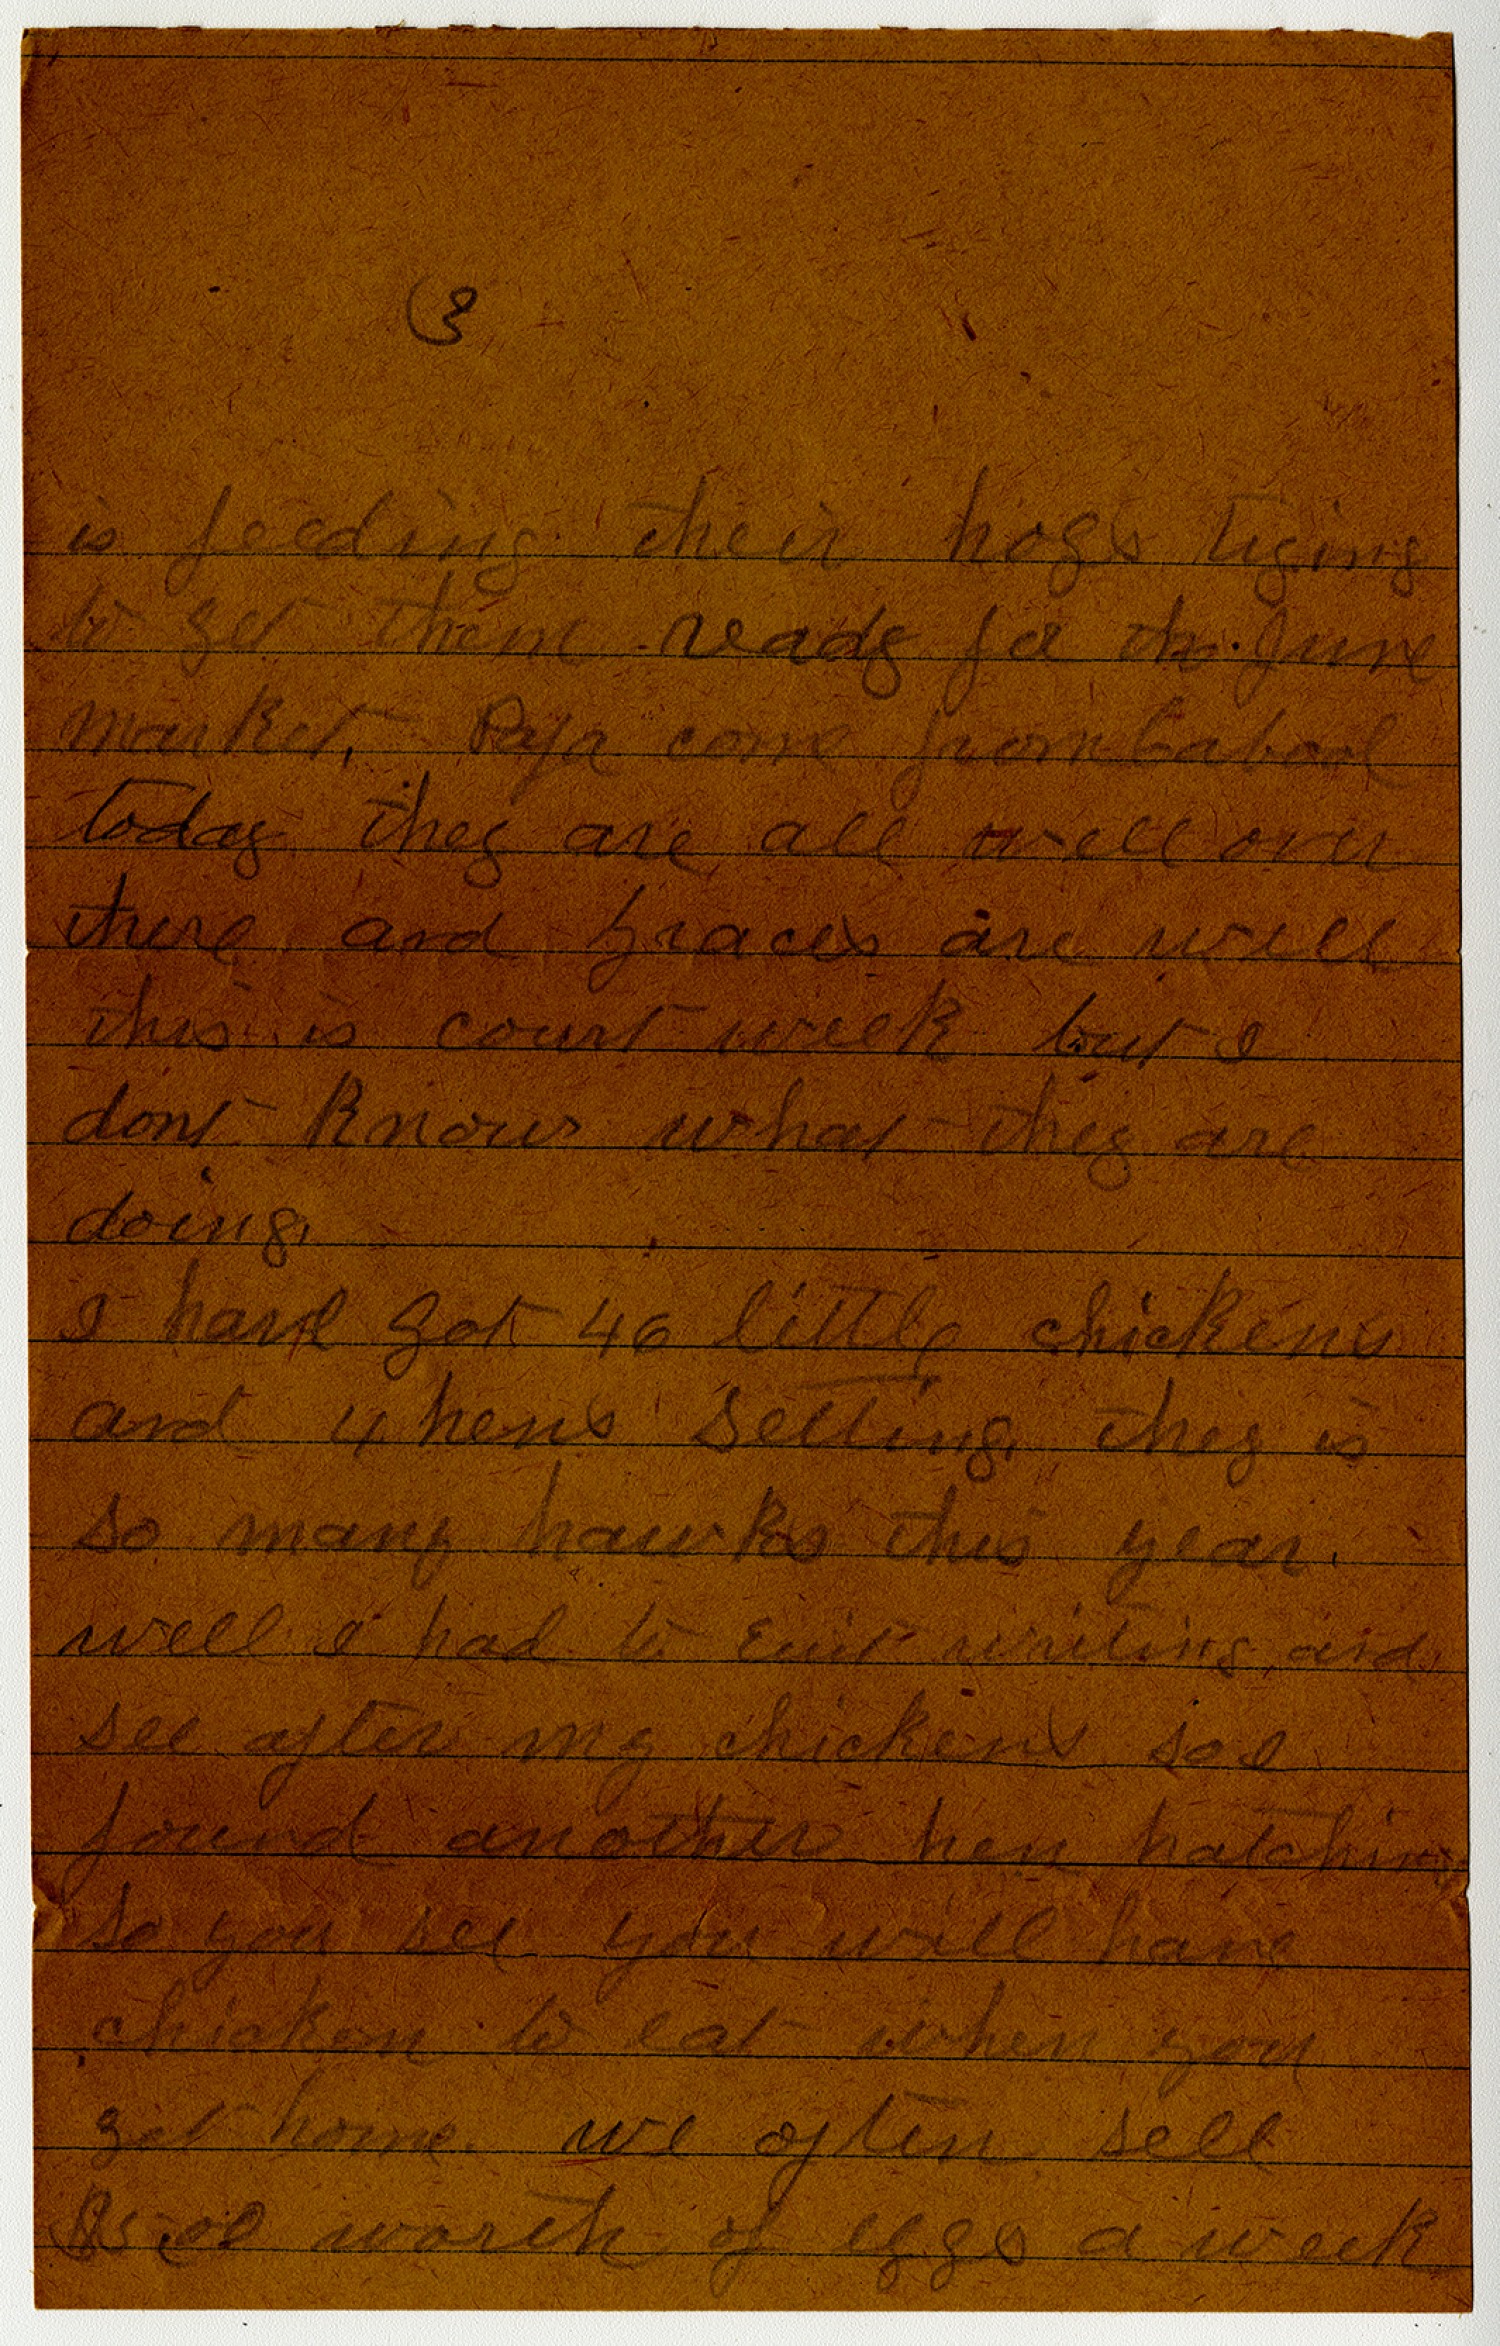 (3
is feeding their hogs trying
to get them ready for the June
market, Papa come from Cabool
today they are all well over
there and Graces are well
this is court week but I
dont know what they are
doing.
I have got 46 little chickens
and 4 hens setting, they is
so many hawks this year.
well I had to quit writing and
see after my chickens so I
found another hen hatching
so you see you will have
chicken to eat when you
get home. we often sell
worth of eggs a week